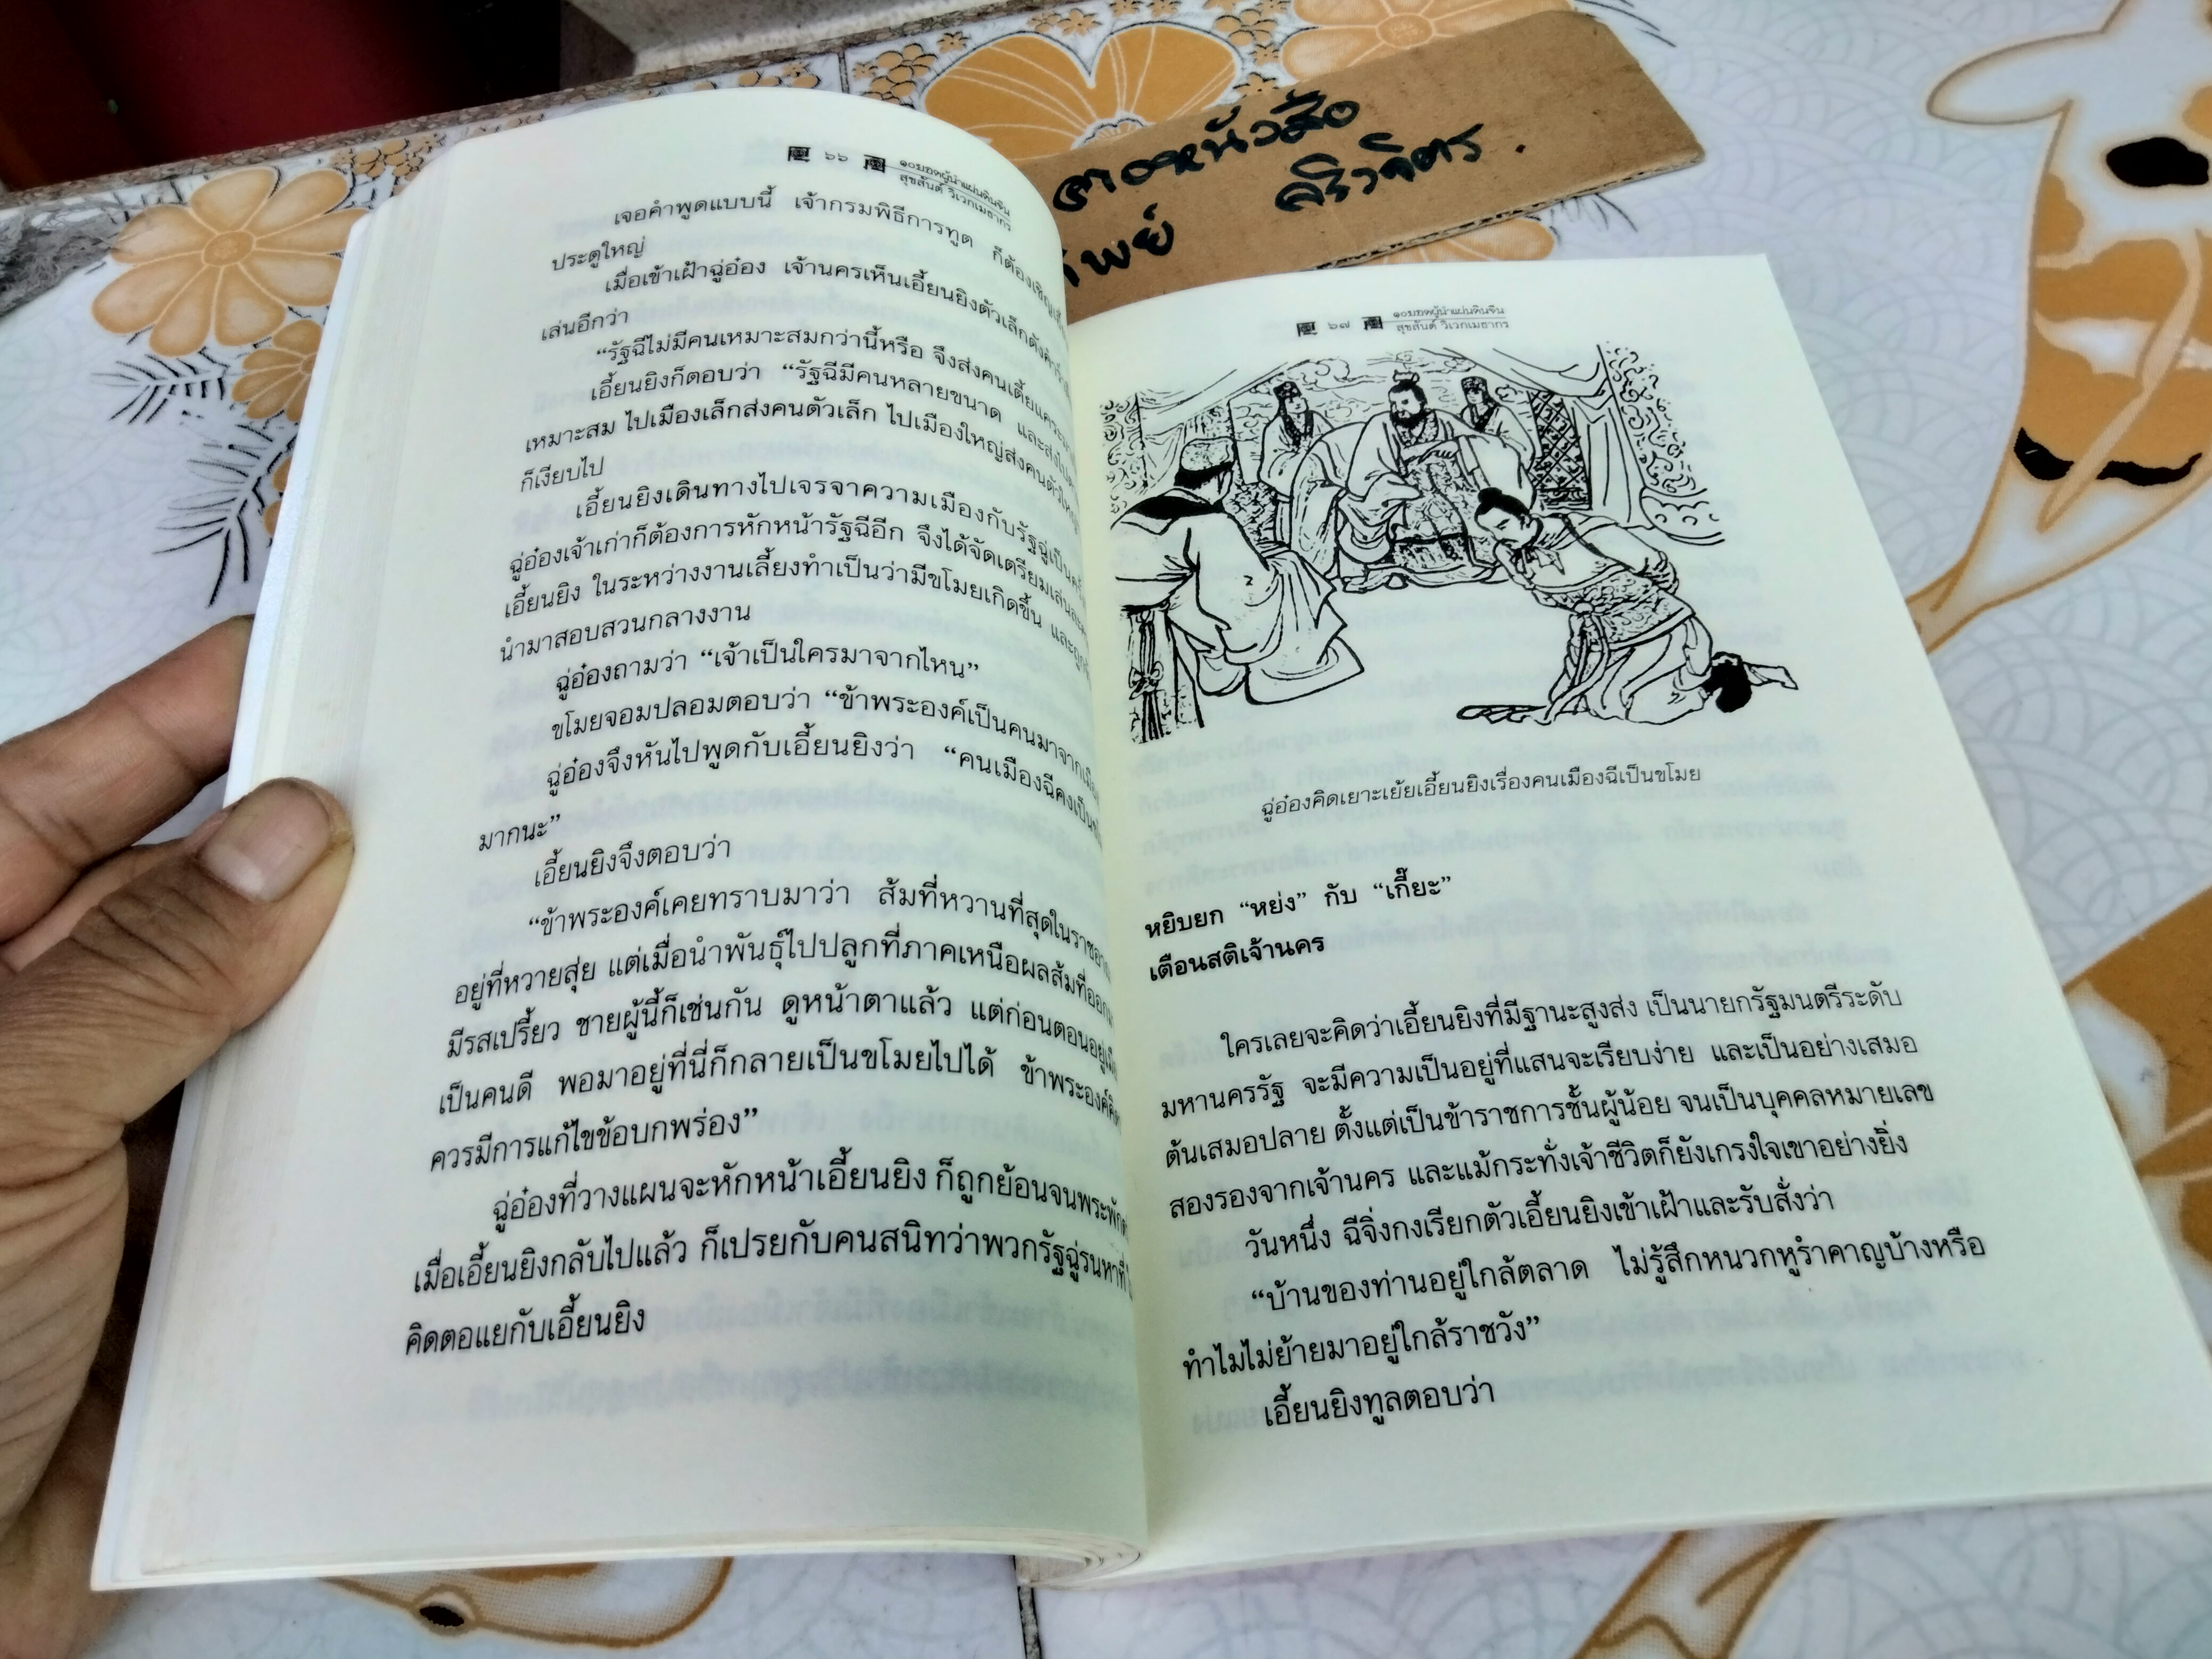 ๖๖ ๑๐ยอดผู้นำแผ่นดินจีน
สุขสันต์ วิเวกเมธากร
เจอคำพูดแบบนี้ เจ้ากรมพิธีการทูต ก็ต้องเชิญ
ประตูใหญ่
เมื่อเข้าเฝ้าฉู่อ๋อง เจ้านครเห็นเอี้ยนยิงตัวเล็กดัง
เล่นอีกว่า
“รัฐฉีไม่มีคนเหมาะสมกว่านี้หรือ จึงส่งคนเตี้ยแคระ
เอี้ยนยิงก็ตอบว่า “รัฐฉีมีคนหลายขนาด และส่งไป
เหมาะสม ไปเมืองเล็กส่งคนตัวเล็ก ไปเมืองใหญ่ส่งคนตัวใหญ่
ก็เงียบไป
เอี้ยนยิงเดินทางไปเจรจาความเมืองกับรัฐฉู่เป็น
ฉู่อ๋องเจ้าเก่าก็ต้องการหักหน้ารัฐฉีอีก จึงได้จัดเตรียมเล่น
เอี้ยนยิง ในระหว่างงานเลี้ยงทำเป็นว่ามีขโมยเกิดขึ้น และถูก
นำมาสอบสวนกลางงาน
ฉู่อ๋องถามว่า “เจ้าเป็นใครมาจากไหน”
ขโมยจอมปลอมตอบว่า “ข้าพระองค์เป็นคนมาจาก
ฉู่อ๋องจึงหันไปพูดกับเอี้ยนยิงว่า “คนเมืองฉีคงเป็น
มากนะ”
เอี้ยนยิงจึงตอบว่า
“ข้าพระองค์เคยทราบมาว่า ส้มที่หวานที่สุดใน
อยู่ที่หวายสุ่ย แต่เมื่อนำพันธุ์ไปปลูกที่ภาคเหนือผลส้มที่ออก
มีรสเปรี้ยว ชายผู้นี้ก็เช่นกัน ดูหน้าตาแล้ว แต่ก่อนตอนอยู่
เป็นคนดี พอมาอยู่ที่นี่ก็กลายเป็นขโมยไปได้ ข้าพระองค์
ควรมีการแก้ไขข้อบกพร่อง”
ฉู่อ๋องที่วางแผนจะหักหน้าเอี้ยนยิง ก็ถูกย้อนจน
เมื่อเอี้ยนยิงกลับไปแล้ว ก็เปรยกับคนสนิทว่าพวกรัฐฉู่รนหาที่
คิดตอแยกับเอี้ยนยิง
๖๗ ๑๐ยอดผู้นำแผ่นดินจีน
สุขสันต์ วิเวกเมธากร
ฉู่อ๋องคิดเยาะเย้ยเอี้ยนยิงเรื่องคนเมืองฉีเป็นขโมย
หยิบยก “หย่ง” กับ “เกี๊ยะ”
เตือนสติเจ้านคร
ใครเลยจะคิดว่าเอี้ยนยิงที่มีฐานะสูงส่ง เป็นนายกรัฐมนตรีระดับ
มหานครรัฐ จะมีความเป็นอยู่ที่แสนจะเรียบง่าย และเป็นอย่างเสมอ
ต้นเสมอปลาย ตั้งแต่เป็นข้าราชการชั้นผู้น้อย จนเป็นบุคคลหมายเลข
สองรองจากเจ้านคร และแม้กระทั่งเจ้าชีวิตก็ยังเกรงใจเขาอย่างยิ่ง
วันหนึ่ง ฉีจิ่งกงเรียกตัวเอี้ยนยิงเข้าเฝ้าและรับสั่งว่า
“บ้านของท่านอยู่ใกล้ตลาด ไม่รู้สึกหนวกหูรำคาญบ้างหรือ
ทำไมไม่ย้ายมาอยู่ใกล้ราชวัง”
เอี้ยนยิงทูลตอบว่า